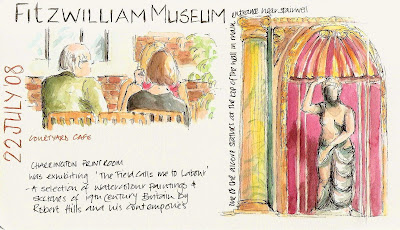 FITZWILLIAM MUSEUM
22 JULY '08
COURTYARD CAFE
CHARRINGTON PRINT ROOM
was exhibiting 'The Field Calls me to Labour'
- A selection of watercolour paintings &
sketches of 19th century Britain by
Robert Hills and his contempories
one of the alcove statues at the top of the wall in main
entrance
stairwell